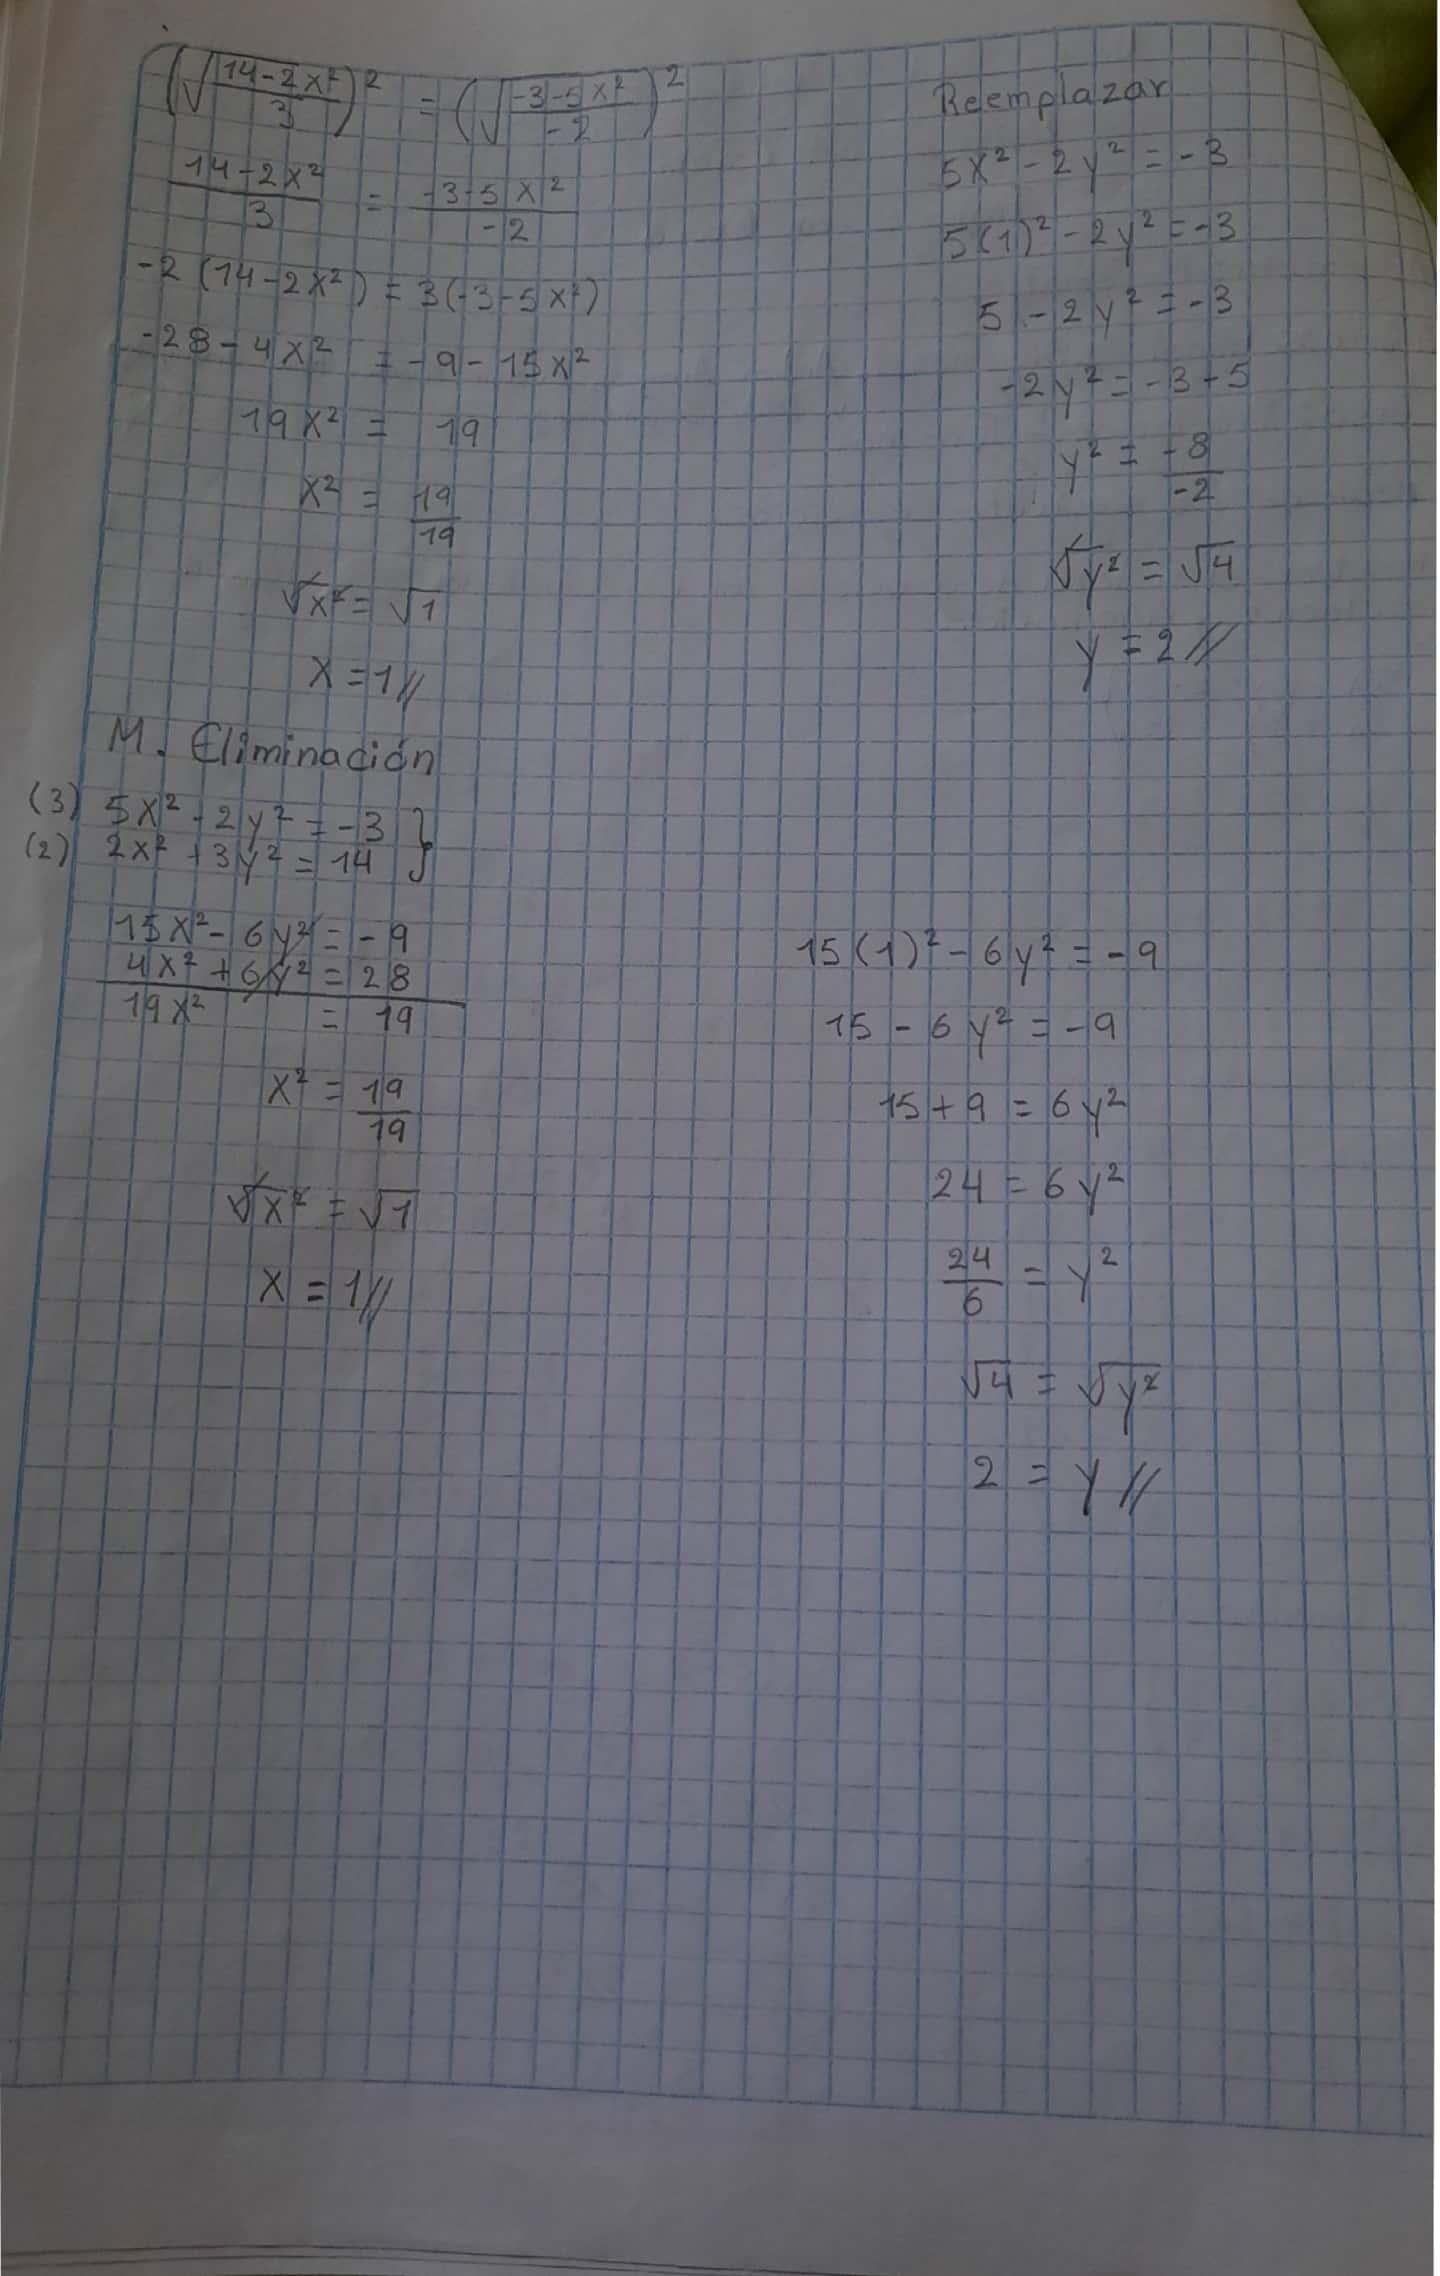 (√(14-2x²/3))² = (√(-3-5x²/-2))²
14-2x²/3 = -3-5x²/-2
-2(14-2x²) = 3(-3-5x²)
-28-4x² = -9-15x²
19x² = 19
x² = 19/19
√x² = √1
x = 1//
Reemplazar
5x² - 2y² = -3
5(1)² - 2y² = -3
5 - 2y² = -3
-2y² = -3-5
y² = -8/-2
√y² = √4
y = 2//
M. Eliminación
(3) 5x² - 2y² = -3 }
(2) 2x² + 3y² = 14
15x² - 6y² = -9
4x² + 6y² = 28
19x² = 19
x² = 19/19
√x² = √1
x = 1//
15(1)² - 6y² = -9
15 - 6y² = -9
15 + 9 = 6y²
24 = 6y²
24/6 = y²
√4 = √y²
2 = y//